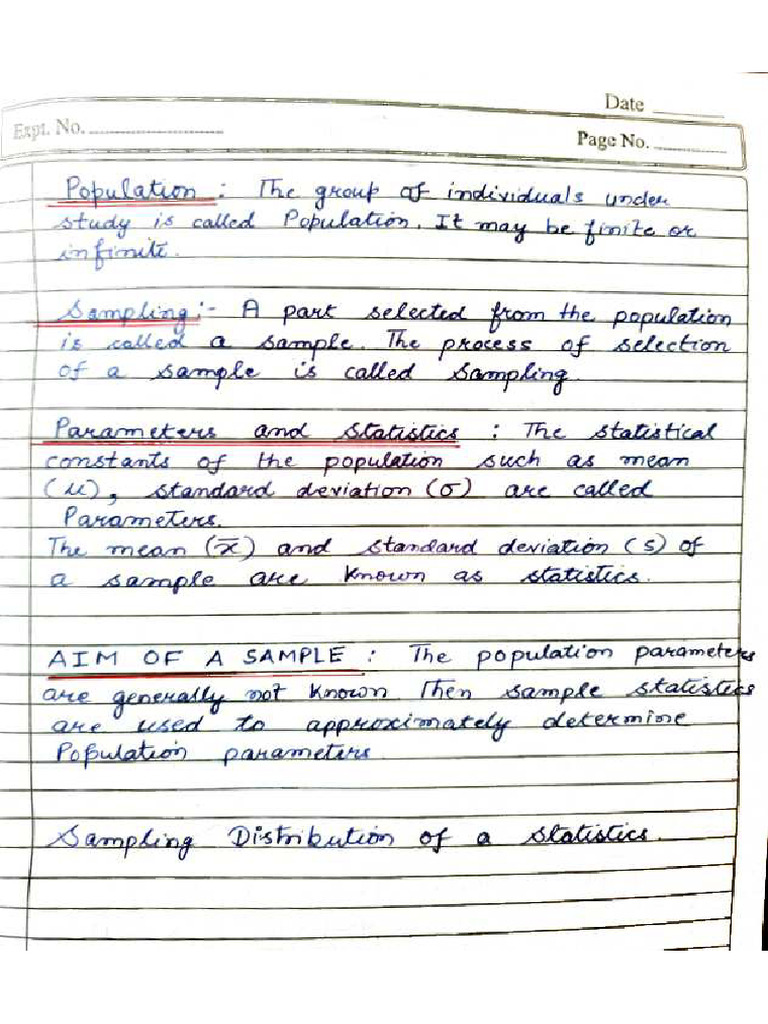 Date
Expt. No.
Page No.
Population : The group of individuals under
study is called Population. It may be finite or
infinite.
Sampling :- A part selected from the population
is called a sample. The process of selection
of a sample is called sampling.
Parameters and statistics : The statistical
constants of the population such as mean
(μ), standard deviation (σ) are called
Parameters.
The mean (x̅) and standard deviation (s) of
a sample are known as statistics.
AIM OF A SAMPLE : The population parameters
are generally not known Then sample statistics
are used to approximately determine
Population parameters
Sampling Distribution of a statistics.